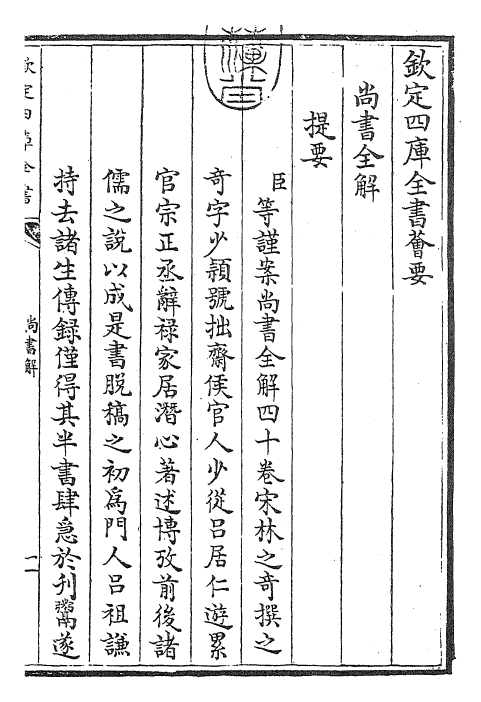 欽定四庫全書薈要
尚書全解
提要
臣等謹案尚書全解四十卷宋林之奇撰之
奇字少頴號拙齋侯官人少從呂居仁遊累
官宗正丞辭禄家居潛心著述博攷前後諸
儒之說以成是書脱稿之初為門人呂祖謙
持去諸生傳録僅得其半書肆急於刋鬻遂
欽定四庫全書
尚書解
一